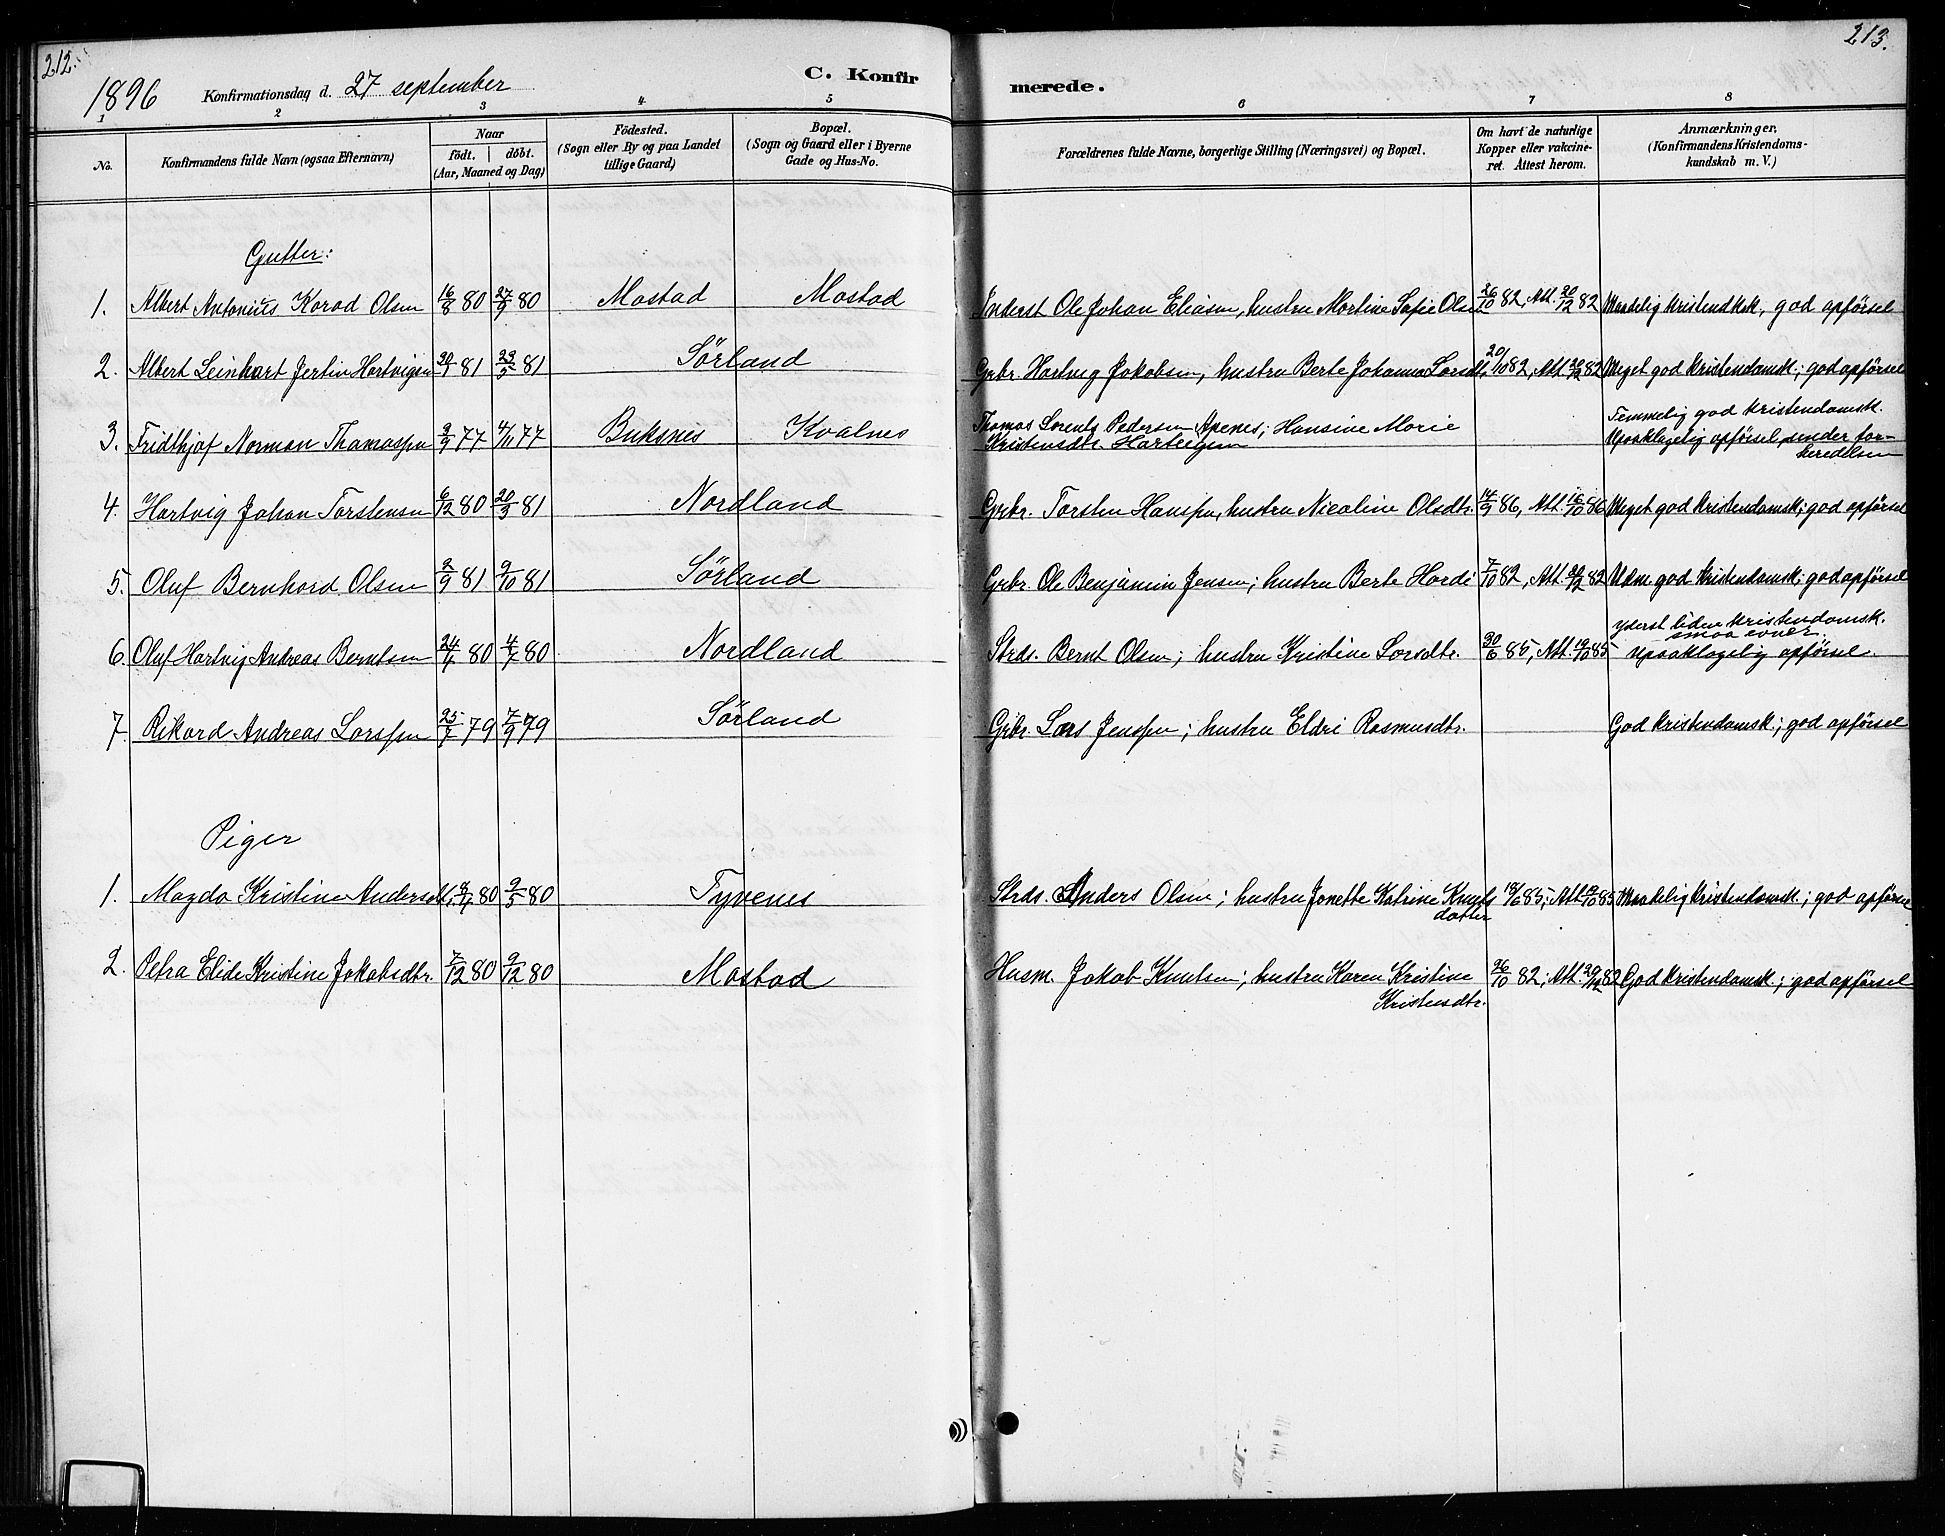 212.
213.
1896 Konfirmationsdag d. 27 september
C. Konfirmerede.
1 2 3 4 5 6 7 8
No. Konfirmandens fulde Navn (ogsaa Efternavn) Naar födt. döbt. (Aar, Maaned og Dag) Födested. (Sogn eller By og paa Landet tillige Gaard) Bopæl. (Sogn og Gaard eller i Byerne Gade og Hus-No. Forældrenes fulde Navne, borgerlige Stilling (Næringsvei) og Bopæl. Om havt de naturlige Kopper eller vakcineret. Attest herom. Anmærkninger, (Konfirmandens Kristendomskundskab m. V.)
Gutter:
1. Albert Antonius Korod Olsen 16/8 80 27/9 80 Mostad Mostad Inderst Ole Johan Eliasen, hustru Martine Sofie Olsen 26/10 82, Att. 20/12 82 Maadelig kristendksk, god opførsel
2. Albert Leinhart Jertin Hartvigsen 81 81 Sørland Grbr. Hartvig Jakobsen, hustru Berte Johanna Larsdt. 20/10 82, Att. 82 Meget god kristendomsk.; god opførsel
3. Fridthjof Norman Thomassen 77 4/11 77 Buksnes Kvalnes Thomas Lorents Pedersen Apenes; Hansine Marie
Kristensdtr. Hartvigsen
Temmelig god kristendomsk.
Upaaklagelig opførsel under forberedelsen
4. Hartvig Johan Torstensen 6/12 80 20/3 81 Nordland Grbr. Torsten Hanssen, hustru Nicoline Olsdtr. 14/9 86, Att. 16/10 86 Meget god kristendomsk; god opførsel
5. Oluf Bernhard Olsen 2/9 81 9/10 81 Sørland Grbr. Ole Benjamin Jensen; hustru Berte Hardi 7/10 82, Att. 82 Udm. god kristendomsk; god opførsel
6. Oluf Hartvig Andreas Berntsen 80 4/7 80 Nordland Strds. Bernt Olsen; hustru Kristine Larsdtr. 30/6 85, Att. 85
Yderst liden kristendomsk.
smaa evner.
Upaaklagelig opførsel.
7. Rikard Andreas Larssen 25/7 79 7/9 79 Sørland Grbr. Lars Jenssen; hustru Eldri Rasmusdtr. God kristendomsk; god opførsel
Piger
1. Magda Kristine Andersdt. 80 9/5 80 Tyvenes Strds. Anders Olsen; hustru Jonette Katrine Knuts
datter
18/6 85; Att. 85 Maadelig kristendomsk.; god opførsel
2. Petra Elide Kristine Jakobsdtr. 7/12 80 9/12 80 Mostad Husm. Jakob Knutsen; hustru Karen Kristine
Kristensdtr.
26/10 82; Att. 20/12 82 God kristendomsk.; god opførsel